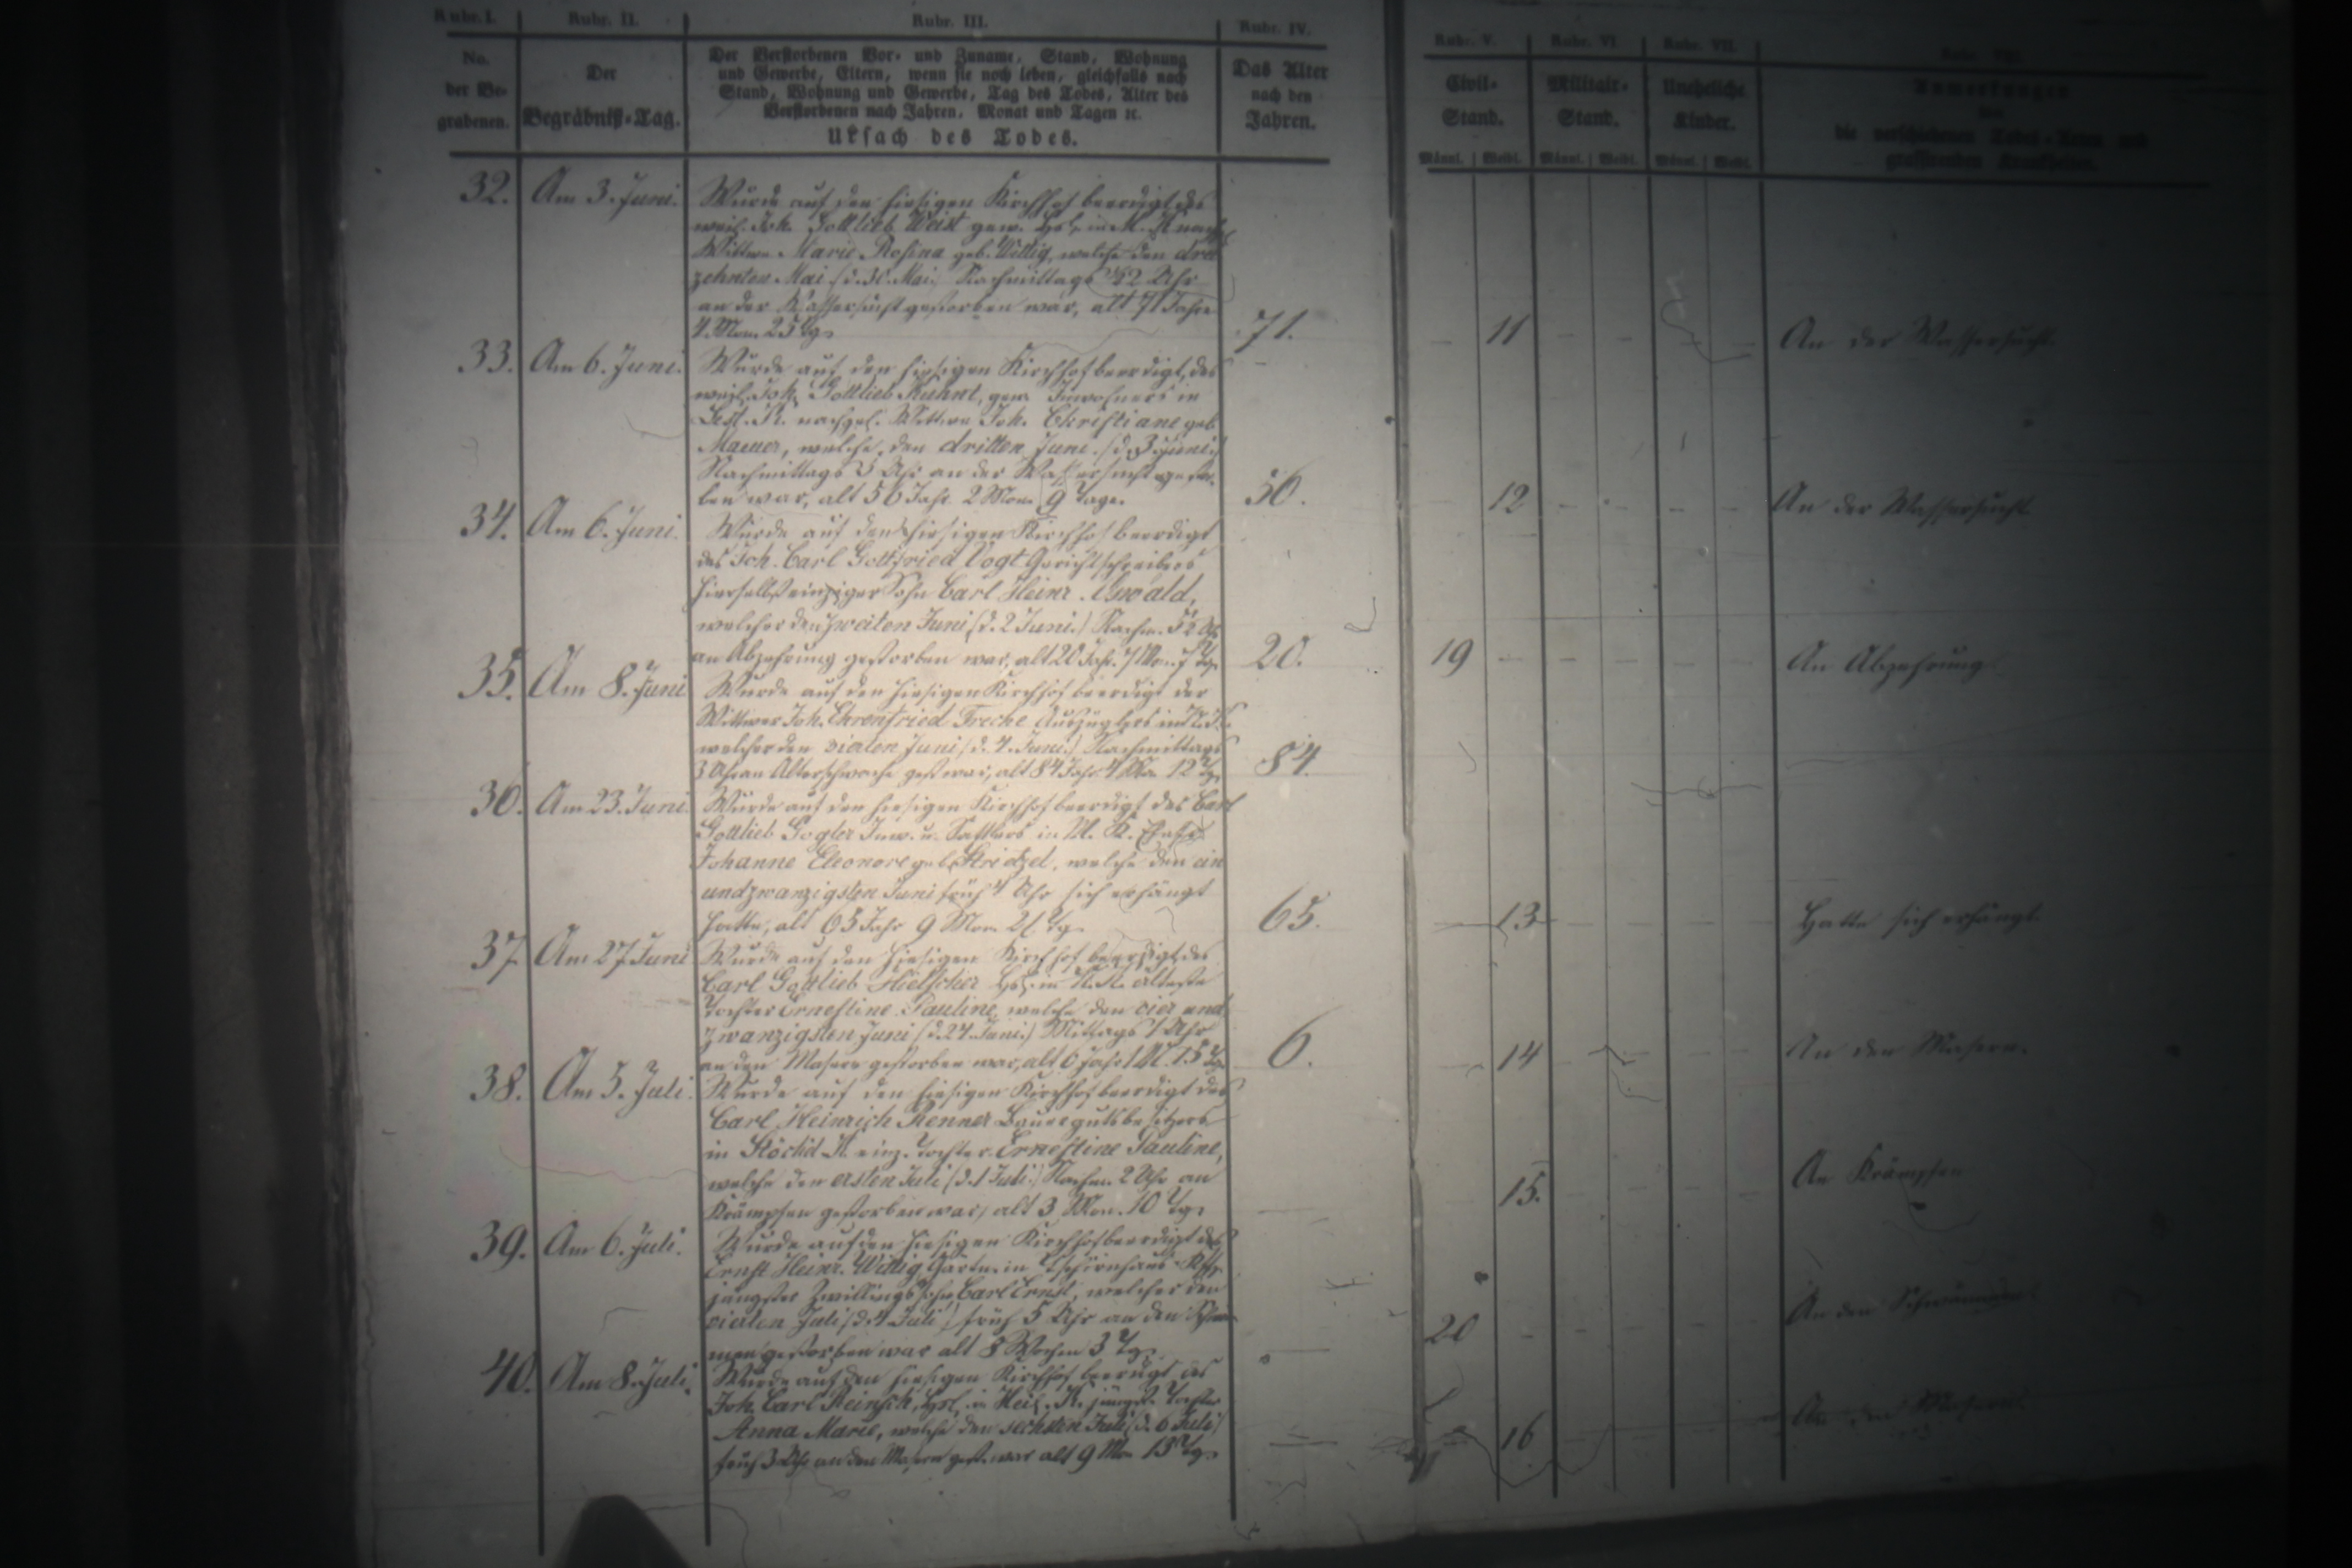 Rubr. I. Rubr. II. Rubr. III. Rubr. IV. Rubr. V. Rubr. VI. Rubr. VII. Rubr. VIII.
No.
der Be-
grabenen.
Der
Begräbniß-Tag.
Der Verstorbenen Vor- und Zuname, Stand, Wohnung
und Gewerbe, Eltern, wenn sie noch leben, gleichfalls nach
Stand, Wohnung und Gewerbe, Tag des Todes, Alter des
Verstorbenen nach Jahren, Monat und Tagen ꝛc.
Ursach des Todes.
Das Alter
nach den
Jahren.
Civil-
Stand.
Männl. Weibl.
Militair-
Stand.
Männl. Weibl.
Uneheliche
Kinder.
Männl. Weibl.
Anmerkungen
über
die verschiedenen Todes-Arten und
grassirenden Krankheiten.
32. Am 3. Juni. Wurde auf den hiesigen Kirchhof beerdigt, des
weil. Joh. Gottlieb Weist gew.
Wittwe Marie Rosina geb. Wittig, welche den drei
zehnten Mai Nachmittags 1/2 2 Uhr
an der Wassersucht gestorben war, alt 71 Jahre
4. Mon. 25 Tg. 71. – 11 – – – – An der Wassersucht.
33. Am 6. Juni. Wurde auf den hiesigen Kirchhof beerdigt, des
weil. Joh. Gottlieb Kuhnt, gew. Inwohners in
nachgel. Wittwe Joh. Christiane geb.
welche den dritten Juni (d. 3 Juni)
Nachmittags 5 Uhr an der Wassersucht gestor-
ben war, alt 56 Jahr 2 Mon. 9 Tage. 56. – 12 – – – – An der Wassersucht.
34. Am 6. Juni. Wurde auf den hiesigen Kirchhof beerdigt
des Joh. Carl Gottfried Vogt Gerichtschreibers
hierselbst einziger Sohn Carl Heinr. Oswald,
welcher den zweiten Juni (d. 2 Juni.) Nachm.
an Abzehrung gestorben war, alt 20 Jahr. 7 Mon. 7 Tg. 20. 19 – – – – – An Abzehrung
35. Am 8. Juni Wurde auf den hiesigen Kirchhof beerdigt der
Wittwer Joh. Ehrenfried Freche Auszügler
welcher den vierten Juni (d. 4. Juni.) Nachmittags
3 Uhr an Altersschwäche gest. war, alt 84 Jahr 4 Mon. 12 Tg. 84.
36. Am 23. Juni. Wurde auf den hiesigen Kirchhof beerdigt des Carl
Gottlieb Gogler Inw. u. Sattlers in
Johanne Eleonore geb. welche den ein
undzwanzigsten Juni früh 4 Uhr sich erhängt
hatte, alt 65 Jahr 9 Mon. 21 Tg. 65. – 13 – – – – Hatte sich erhängt.
37. Am 27 Juni Wurde auf den hiesigen Kirchhof beerdigt, des
Carl Gottlieb Hielscher älteste
Tochter Ernestine Pauline, welche den vier und
zwanzigsten Juni (d. 24. Juni.) Mittags 1 Uhr
an den Masern gestorben war, alt 6 Jahr 1 M. 15 Tg. 6. – 14 – – – – An den Masern.
38. Am 5. Juli. Wurde auf den hiesigen Kirchhof beerdigt des
Carl Heinrich Renner Bauergutsbesitzers
in einz. Tochter Ernestine Pauline,
welche den ersten Juli (d. 1 Juli.) Nachm. 2 Uhr an
Krämpfen gestorben war, alt 3 Mon. 10 Tg. 15. – – – – An Krämpfen
39. Am 6. Juli. Wurde auf den hiesigen Kirchhof beerdigt des
Ernst Heinr. Wittig Gärtn. in
jüngster Zwillings Sohn Carl Ernst, welcher den
vierten Juli (d. 4 Juli) früh 5 Uhr an den
gestorben war alt 8 Wochen 3 Tg. 20 – – – – – An den
40. Am 8. Juli. Wurde auf den hiesigen Kirchhof beerdigt des
Joh. Carl Reinsch, jüngste Tochter
Anna Marie, welche den sechsten Juli (d. 6 Juli)
früh 3 Uhr an den Masern gest. war alt 9 Mon. 13 Tg. 16 An den Masern.